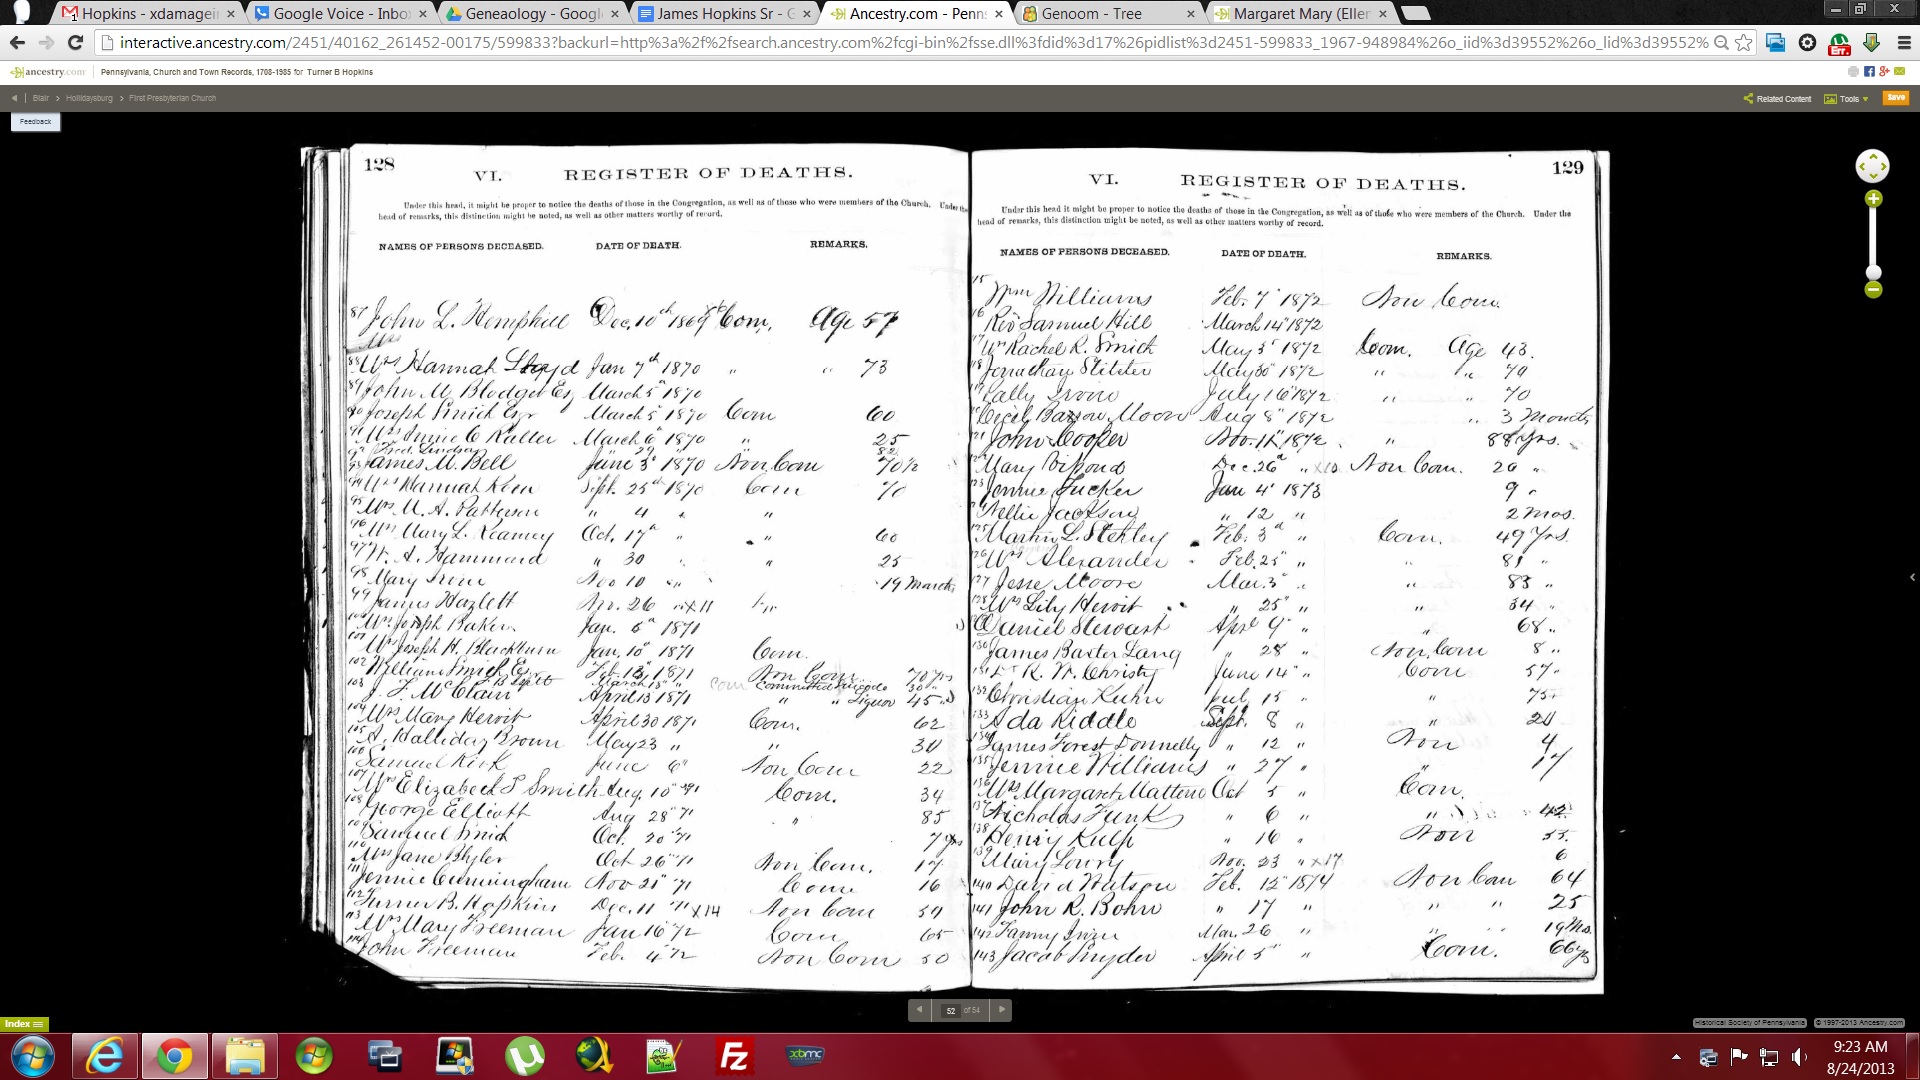 Hopkins - xdamagein
Google Voice - Inbo
Geneaology - Googl
James Hopkins Sr - G
Ancestry.com - Penns
Genoom - Tree
Margaret Mary (Eller
interactive.ancestry.com/2451/40162_261452-00175/599833?backurl=http%3a%2f%2fsearch.ancestry.com%2fcgi-bin%2fsse.dll%3fdid%3d17%26pidlist%3d2451-599833_1967-948984%26o_iid%3d39552%26o_lid%3d39552%
ancestry.com Pennsylvania, Church and Town Records, 1708-1985 for Turner B Hopkins
Blair > Hollidaysburg > First Presbyterian Church
Related Content Tools Save
Feedback
128
VI. REGISTER OF DEATHS.
Under this head, it might be proper to notice the deaths of those in the Congregation, as well as of those who were members of the Church. Under the
head of remarks, this distinction might be noted, as well as other matters worthy of record.
NAMES OF PERSONS DECEASED. DATE OF DEATH. REMARKS.
87 John L. Hemphill Dec. 10th 1869 Com. Age 57
88 Mrs Hannah Lloyd Jan 7th 1870 " " 73
89 John M. Blodget Esq March 5th 1870
90 Joseph Smith Esqr March 5th 1870 Com 60
91 March 6th 1870 " 25
93 James M. Bell June 3d 1870 Non Com 70½
94 Mrs Hannah Kem Sept. 25th 1870 Com 70
95 Mrs M. A. Patterson " 4 " "
96 Mrs Mary L. Kearney Oct. 17th " " 60
97 W. A. Hammond " 30 " 25
98 Mary Nov 10 " 19 Months
99 James Hazlett Nov. 26 " X11
100 Joseph Baker Jan. 5th 1871
101 Joseph H. Blackburn Jan. 10th 1871 Com.
102 William Smith Feb. 13 1871 Non Com 70 yrs
103 J. F. McClain April 13 1871 " " Liquor 45
104 Mrs Mary Hewit April 30 1871 Com. 62
105 A. Halliday Brown May 23 " "
106 Samuel Kirk June 6" Non Com 22
107 Mrs Elizabeth S Smith Aug. 10" 71 Com. 34
108 George Elliott Aug 28" 71 " 85
109 Samuel Smith Oct. 20" 71 7 yrs
110 Mrs Jane Oct 26" 71 Non Com.
111 Jennie Cunningham Nov 21" 71 Com 16
112 Turner B. Hopkins Dec. 11 "71 X14 Non Com
113 Mrs Mary Freeman Jan 16" 72 Com 65
114 John Freeman Feb. 4" 72 Non Com 50
129
VI. REGISTER OF DEATHS.
Under this head it might be proper to notice the deaths of those in the Congregation, as well as of those who were members of the Church. Under the
head of remarks, this distinction might be noted, as well as other matters worthy of record.
NAMES OF PERSONS DECEASED. DATE OF DEATH. REMARKS.
15 Wm Williams Feb. 7" 1872 Non Com.
16 Revd Samuel Hill March 14" 1872
17 Rachel R. Smith May 3" 1872 Com. Age 43.
18 Jonathan May 30" 1872 " " 79
19 Sally Irvin July 16" 1872 " " 70
Cecil Moore Aug 8" 1872 " 3 Months
121 John Cooper Nov. 11" 1872. " 88 yrs.
Mary Dec. 26th " X10 Non Com. 20 "
123 Jennie Tucker Jan 4" 1873 9 "
Nellie Jackson " 12 " 2 mos.
125 Martin L. Stehley Feb. 3d " Com. 49 yrs.
126 Mrs Alexander Feb. 25" " 81 "
127 Jesse Moore Mar. 3" " " 83 "
128 Mrs Lily Hewit " 25" " "
Daniel Stewart Apr 9" " " 68 "
130 James Baxter Lang " 28" " Non Com 8 "
131 R. W. Christy June 14" " Com 57 "
132 Christian Kuhn July 15" " " 75
133 Ada Riddle Sept. 8 " "
134 James Forest Donnelly " 12 " Non 4
135 Jennie Williams " 27 " " 17
136 Mrs Margaret Oct 5 " Com.
137 Nicholas Funk " 6 " " 42
138 Henry Kulp " 16 " Non 55.
139 Mary Lowry Nov. 23 " X17 6
140 David Watson Feb. 12" 1874 Non Com 64
141 John R. Bohn " 17 " " " 25
142 Fanny Mar. 26 " " " 19 Mo.
143 Jacob Snyder April 5" " Com. 66 yrs
52 of 54
Index
Historical Society of Pennsylvania © 1997-2013 Ancestry.com
9:23 AM
8/24/2013